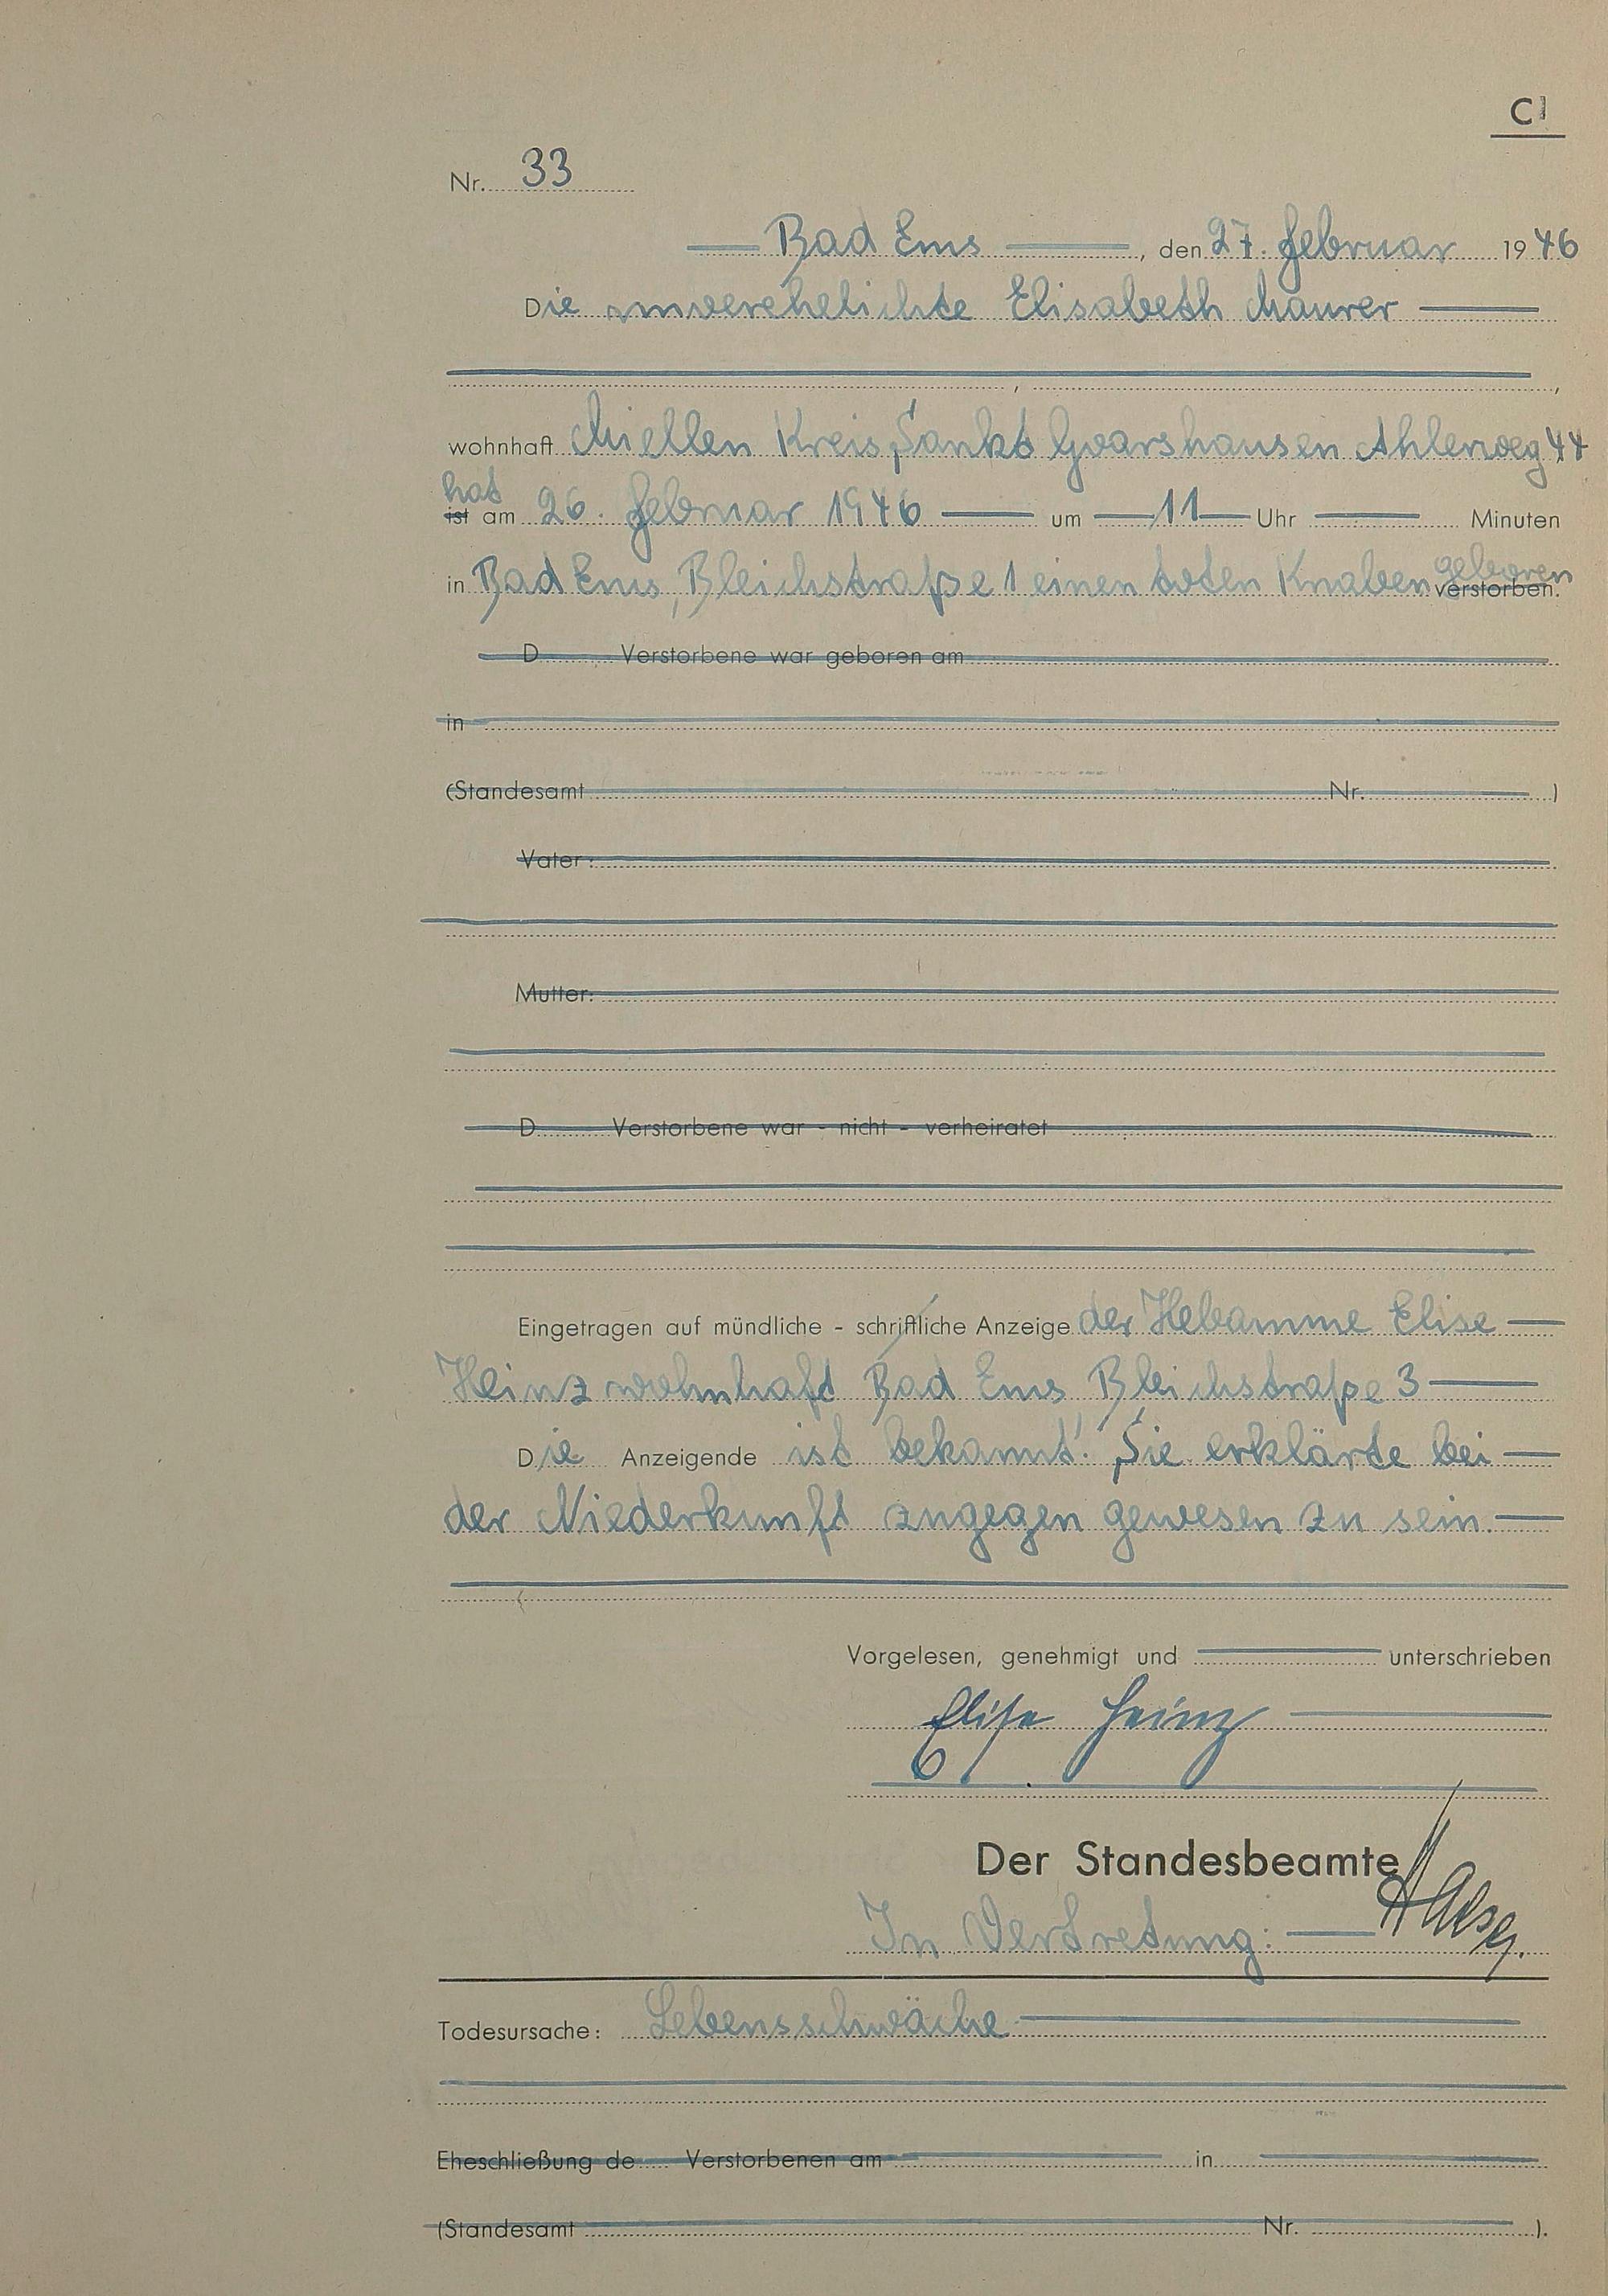 C
Nr. 33
Bad Ems, den 27. Februar 1946
Die unverehelichte Elisabeth Maurer
,
wohnhaft Miellen Kreis Sankt Goarshausen Ahlerweg 44
hat
ist am 26. Februar 1946 um 11 Uhr Minuten
geboren
in Bad Ems, Bleichstraße 1 einen toten Knaben verstorben.
D Verstorbene war geboren am
in
(Standesamt Nr. )
Vater:
Mutter:
D Verstorbene war - nicht - verheiratet
Eingetragen auf mündliche - schriftliche Anzeige der Hebamme Elise
Heinz wohnhaft Bad Ems Bleichstraße 3
Die Anzeigende ist bekannt. Sie erklärte bei
der Niederkunft zugegen gewesen zu sein.
Vorgelesen, genehmigt und unterschrieben
Elise Heinz
Der Standesbeamte
In Vertretung:
Todesursache: Lebensschwäche
Eheschließung de Verstorbenen am in
(Standesamt Nr. ).